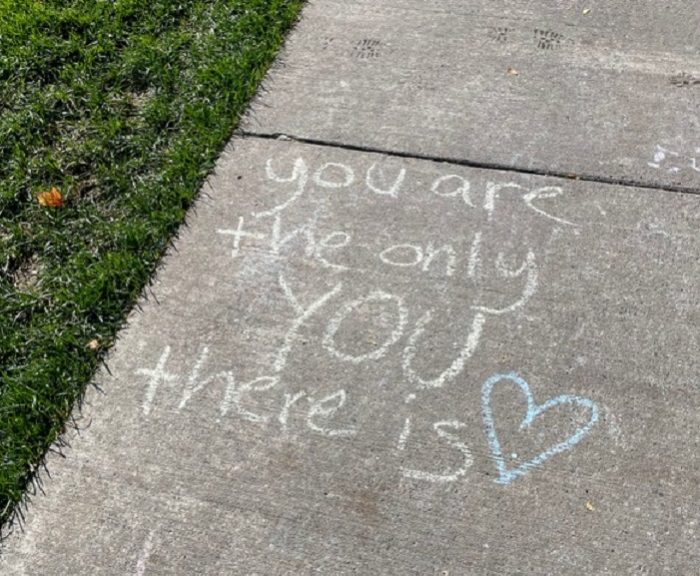 you are
the only
YOU
there is